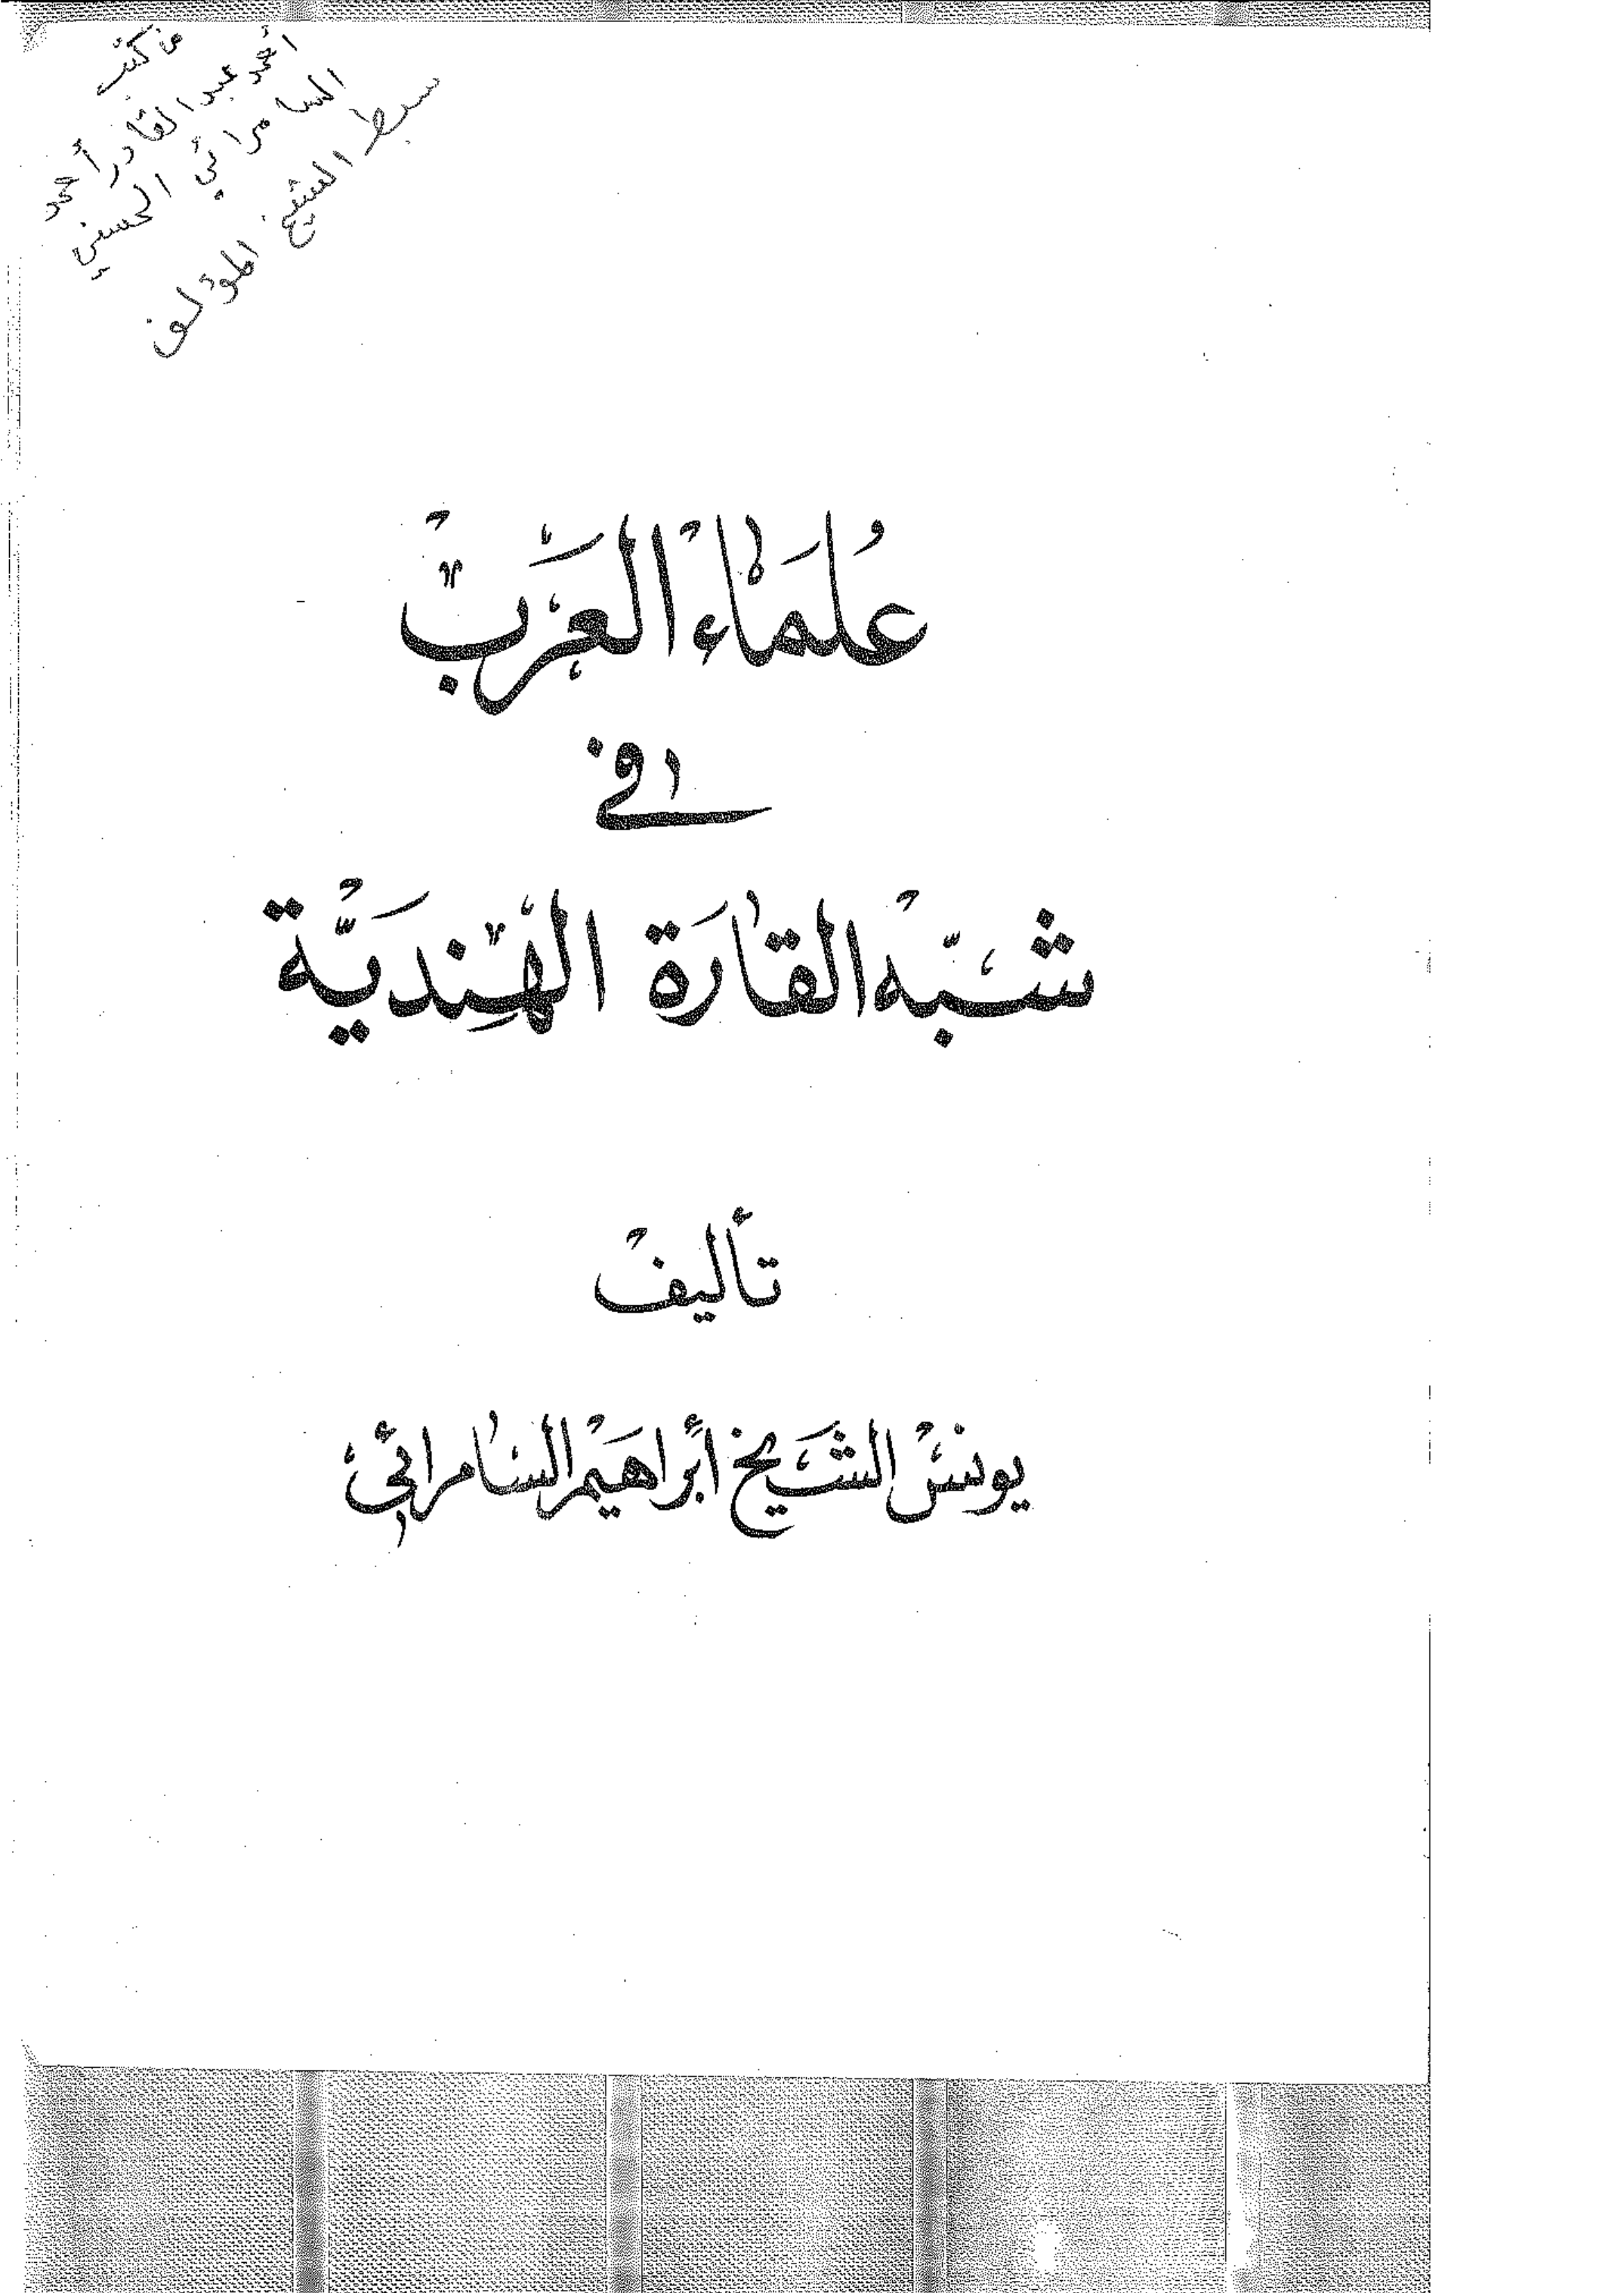 من كتب
أحمد عبد القادر أحمد
السامرائي الحسني
سبط الشيخ المؤلف
عُلَمَاءُ العَرَبْ
في
شبْه القارَة الهنْديَّة
تأليفْ
يونسْ الشَيخ أبراهيْم السامرائي